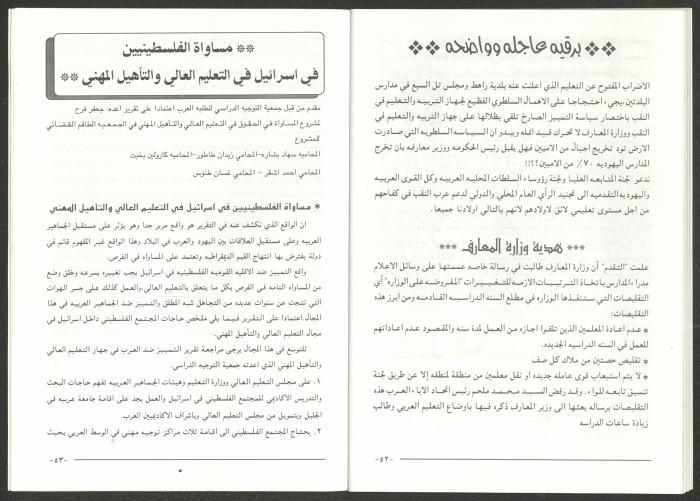 ❖❖ برقيه عاجله وواضحه ❖❖
الاضراب المفتوح عن التعليم الذي اعلنت عنه بلدية راهط ومجلس تل السبع في مدارس
البلدتين،يجيء احتجاجا على الاهمال السلطوي الفظيع لجهاز التربيه والتعليم في
النقب باختصار سياسة التمييز الصارخ تلقي بظلالها على جهاز التربيه والتعليم في
النقب ووزارة المعارف لا تحرك قيد أنمله ويبدو ان السياسه السلطويه التي صادرت
الارض تود تخريج أجيال من الاميين فهل يقبل رئيس الحكومه ووزير معارفه بان تخرج
المدارس اليهوديه ٧٠٪ من الاميين؟؟!!
ندعو لجنة المتابعه العليا ولجنة رؤوساء السلطات المحليه العربيه وكل القوى العربيه
واليهوديه التقدميه الى تجنيد الرأي العام المحلي والدولي لدعم عرب النقب في كفاحهم
من اجل مستوى تعليمي لائق لاولادهم لانهم بالتالي اولادنا جميعا.
*** هدية وزارة المعارف ***
علمت "التقدم" أن وزارة المعارف طالبت في رسالة خاصه عممتها على وسائل الاعلام
مدراء المدارس باتخاذ الترتيبات الازمه للتغييرات "المفروضه على الوزاره" أي
التقليصات التي ستنفذها الوزاره في مطلع السنه الدراسيه القادمه ومن ابرز هذه
التقليصات:
* عدم اعادة المعلمين الذين تلقوا اجازه من العمل لمدة سنه والمقصود عدم اعادتهم
للعمل في السنه الدراسيه الجديده.
* تقليص حصتين من ملاك كل صف
* لا يتم استيعاب قوى عامله جديده او نقل معلمين من منطقة لمنطقه إلا عن طريق لجنة
تنسيق تابعه للواء. وقد رفض السيد محمد ملحم رئيس اتحاد الاباء العرب هذه
التقليصات برساله بعثها الى وزير المعارف ذكره فيها باوضاع التعليم العربي وطالب
زيادة ساعات الدراسه
-٥٢-
** مساواة الفلسطينيين
في اسرائيل في التعليم العالي والتأهيل المهني **
مقدم من قبل جمعية التوجيه الدراسي للطلبه العرب اعتمادا على تقرير اعده: جعفر فرح
لمشروع المساواة في الحقوق في التعليم العالي والتأهيل المهني في الجمعيه الطاقم القضائي
للمشروع
المحاميه سهاد بشاره-المحامي زيدان طاطور-المحاميه كارولين بخيت
المحامي احمد اشقر - المحامي غسان طنوس
* مساواة الفلسطينيين في اسرائيل في التعليم العالي والتأهيل المهني
ان الواقع الذي نكشف عنه في التقرير هو واقع مرير جدا وهو يؤثر على مستقبل الجماهير
العربيه وعلى مستقبل العلاقات بين اليهود والعرب في البلاد وهذا الواقع غير المفهوم قائم في
دولة يفترض بها انتهاج القيم الديمقراطيه وتعتمد على المساواه في الفرص.
واقع التمييز ضد الاقليه القوميه الفلسطينيه في اسرائيل يجب تغييره بسرعه وخلق وضع
من المساواه التامه في الفرص بكل ما يتعلق بالتعليم العالي،والعمل كذلك على جسر الهوات
التي نتجت عن سنوات عديده من التجاهل شبه المطلق والتمييز ضد الجماهير العربيه في هذا
المجال.اعتمادا على التقرير فيما يلي ملخص حاجات المجتمع الفلسطيني داخل اسرائيل في
مجال التعليم العالي والتأهيل المهني.
للتوسع في هذا المجال يرجى مراجعة تقرير التمييز ضد العرب في جهاز التعليم العالي
والتأهيل المهني الذي اعدته جمعية التوجيه الدراسي.
١. على مجلس التعليم العالي ووزارة التعليم وهيئات الجماهير العربيه تفهم حاجات البحث
والتدريس الاكاديمي للمجتمع الفلسطيني في اسرائيل والعمل بجد على اقامة جامعة عربيه في
الجليل وبتمويل من مجلس التعليم العالي وباشراف الاكاديميين العرب.
٢. يحتاج المجتمع الفلسطيني الى اقامة ثلاث مراكز توجيه مهني في الوسط العربي بحيث
-٥٣-